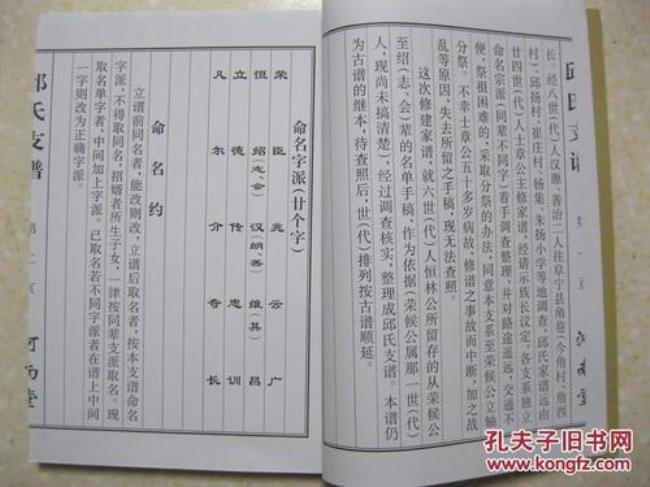 邱氏支谱
长。经八世(代)人汉源、善治二人往阜宁县角巷(今角村、角西
村)、邱扬村、崔庄村、杨集、朱扬小学等地调查,邱氏家谱远由
廿四世(代)人士章公主修家谱,经请示族长议定,各支系独立
命名宗派(同辈不同字)看手调查整理,并对路途遥远,交通不
便,祭祖困难的,采取分祭的办法,同意本支系至荣候公立轴
分祭。不幸士章公五十多岁病故,修谱之事故而中断,加之战
乱等原因,失去所留之手稿,现无法查照。
这次修建家谱,就六世(代)人恒林公所留存的从荣候公
至绍(志、会)辈的名单手稿,作为依据(荣候公属那一世(代)
人,现尚未搞清楚)、经过调查核实,整理成邱氏支谱。本谱仍
为古谱的继本,待查照后,世(代)排列按古谱顺延。
命名字派(廿个字)
荣臣兆云广
恒绍(志、会)汉(朗、善)维(其)昌
立德传忠训
凡尔介奇长
命名约
立谱前同名者,能改则改,立谱后取名者,按本支谱命名
字派,不得取同名,招婿者所生子女,一律按同辈支派取名。现
取名单字者,中间加上字派。已取名若不同字派者在谱上中间
一字则改为正确字派。
邱氏支谱
第二页
河南堂
孔夫子旧书网
www.kongfz.com